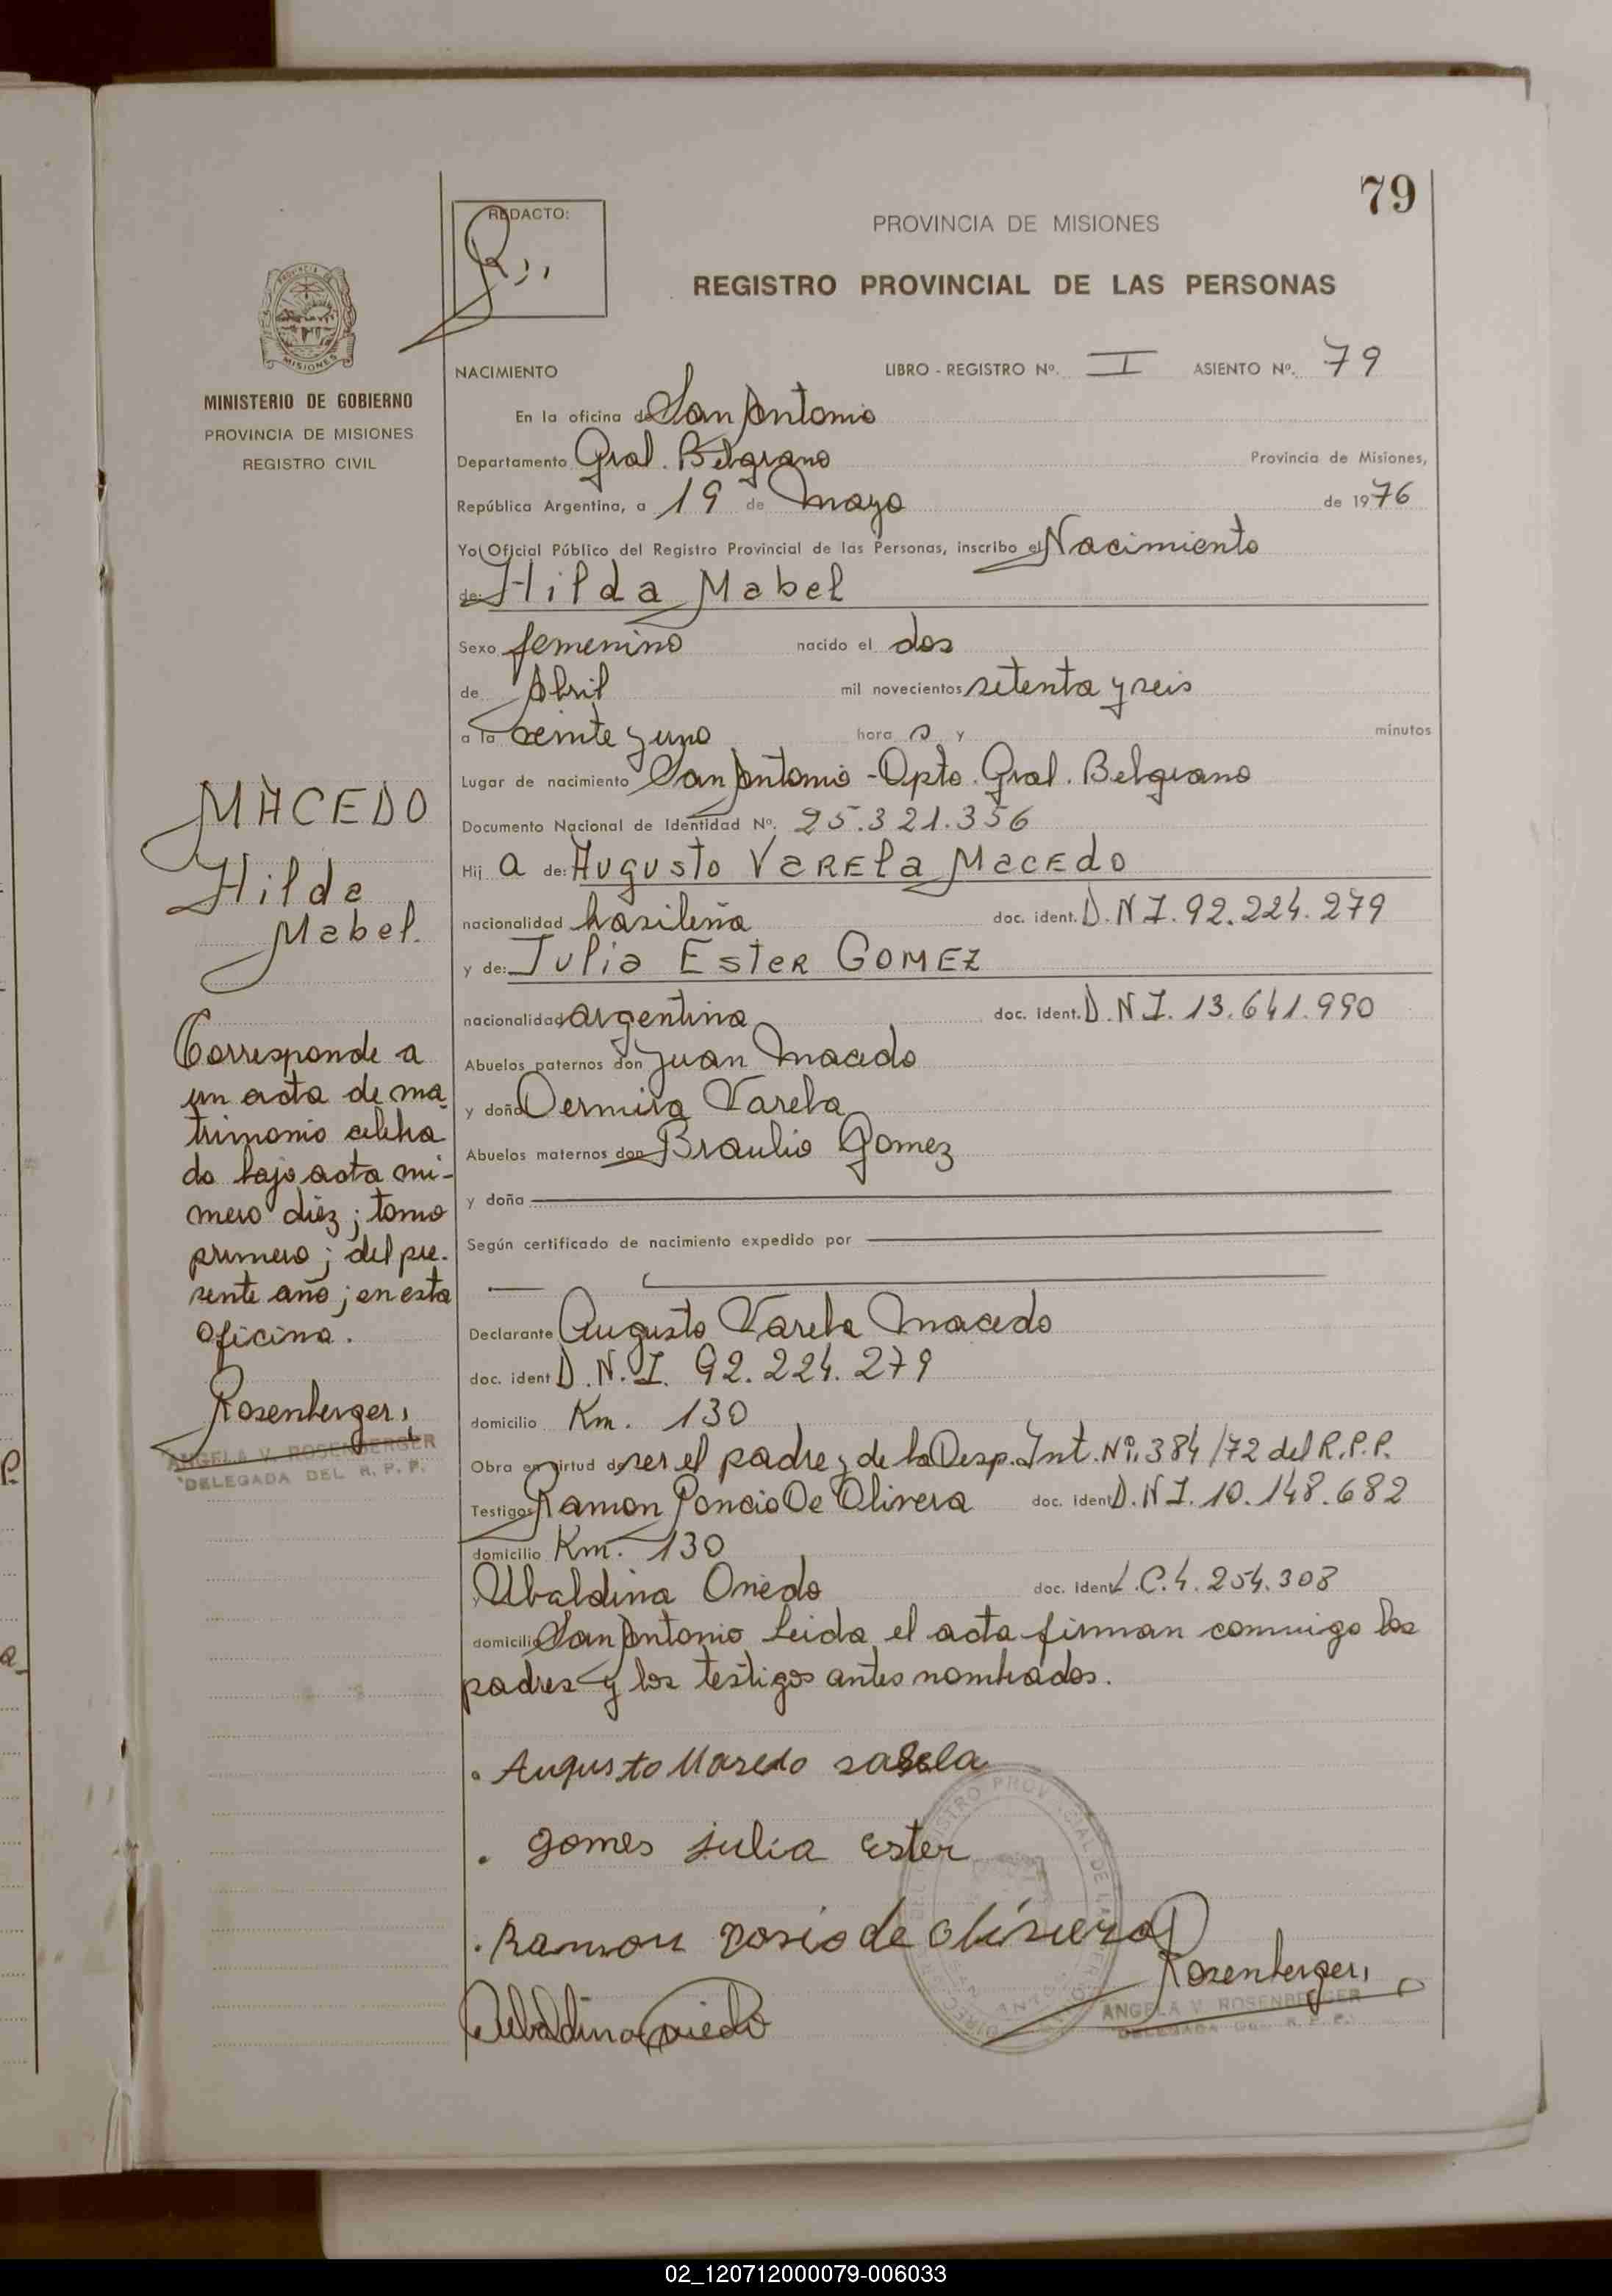 79
REDACTO:
PROVINCIA DE MISIONES
REGISTRO PROVINCIAL DE LAS PERSONAS
MINISTERIO DE GOBIERNO
PROVINCIA DE MISIONES
REGISTRO CIVIL
NACIMIENTO LIBRO - REGISTRO Nº. I ASIENTO Nº. 79
En la oficina de San Antonio
Departamento Gral. Belgrano Provincia de Misiones,
República Argentina, a 19 de mayo de 1976
Yo, Oficial Público del Registro Provincial de las Personas, inscribo el Nacimiento
de: Hilda Mabel
Sexo femenino nacido el dos
de Abril mil novecientos setenta y seis
a la veinte y uno hora s y minutos
Lugar de nacimiento San Antonio - Dpto. Gral. Belgrano
Documento Nacional de Identidad Nº. 25.321.356
Hij a de: Augusto VARELA MACEDO
nacionalidad brasileña doc. ident. D.N.I. 92.224.279
y de: Julia Ester GOMEZ
nacionalidad argentina doc. ident. D.N.I. 13.641.990
Abuelos paternos don Juan Macedo
y doña Varela
Abuelos maternos don Braulio Gomez
y doña
Según certificado de nacimiento expedido por
Declarante Augusto Varela Macedo
doc. ident D.N.I. 92.224.279
domicilio Km. 130
Obra en virtud de ser el padre y de la Desp. Int. Nº. 384/72 del R.P.P.
Testigos Ramon Poncio De Olivera doc. ident D.N.I. 10.148.682
domicilio Km. 130
y Ubaldina Oviedo doc. ident L.C. 4.254.308
domicilio San Antonio Leida el acta firman conmigo los
padres y los testigos antes nombrados.
MACEDO
Hilda
Mabel.
Corresponde a
un acta de ma
trimonio celebra
do bajo acta nú-
mero diez; tomo
primero; del pre-
sente año; en esta
oficina.
Rosenberger
ANGELA V. ROSENBERGER
DELEGADA DEL R. P. P.
Augusto Masedo
gomes julia Ester
Ramon de
Ubaldina Oviedo
Rosenberger
ANGELA V. ROSENBERGER
DELEGADA DEL R. P. P.
02_120712000079-006033